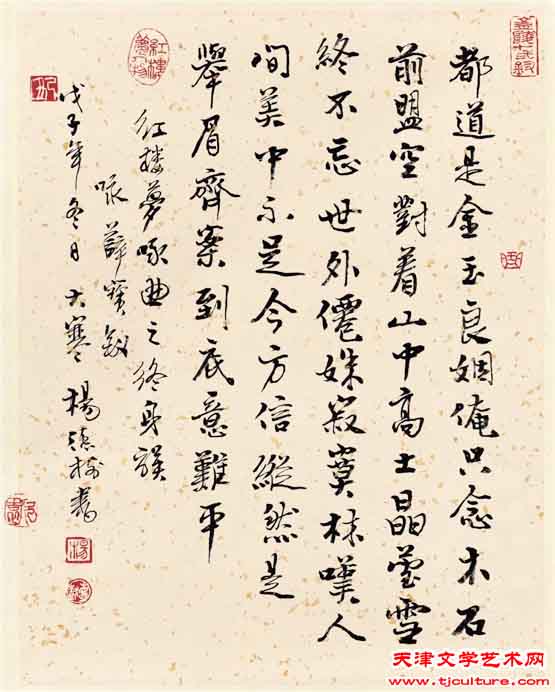 都道是金玉良姻俺只念木石
前盟空對着山中高士晶瑩雪
終不忘世外僊姝寂寞林嘆人
间美中不足今方信縱然是
舉眉齊案到底意難平
红楼夢曲之终身誤
咏薛寶釵
戊子年冬日大寒楊書
紅樓夢人物
楊
天津文学艺术网
www.tjculture.com